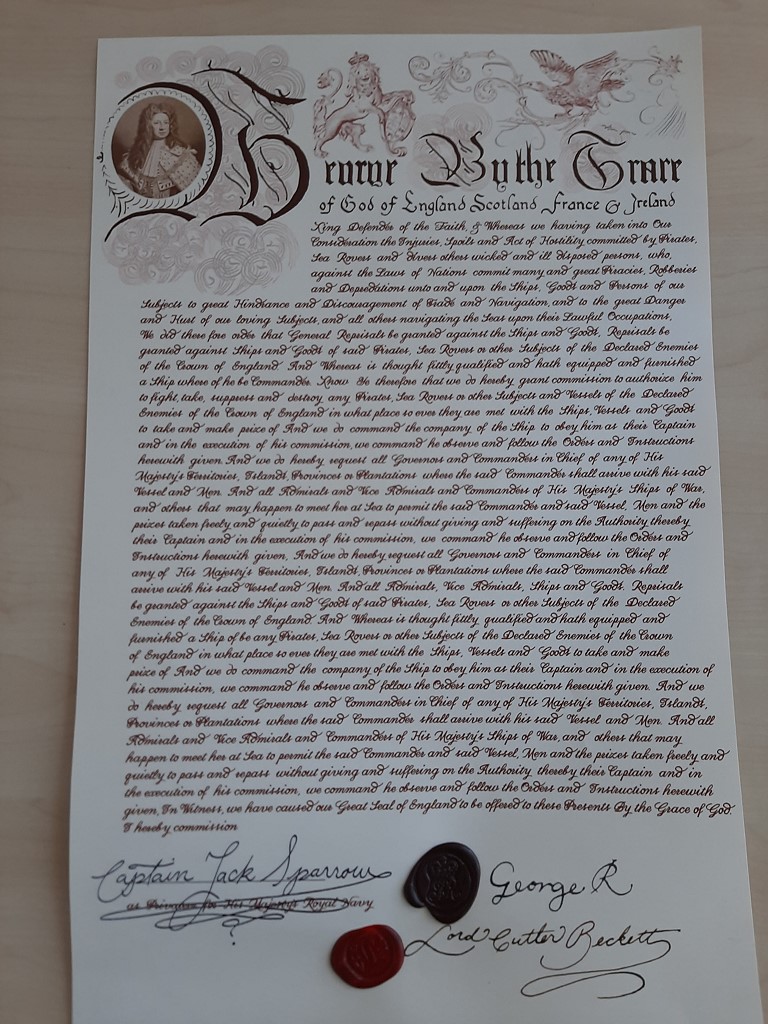 George By the Grace
of God of England Scotland France & Ireland
King Defender of the Faith, & Whereas we having taken into Our
Consideration the Injuries, Spoils and Act of Hostility committed by Pirates,
Sea Rovers and divers others wicked and ill disposed persons, who,
against the Laws of Nations commit many and great Piracies, Robberies
and Depredations unto and upon the Ships, Goods and Persons of our
Subjects to great Hindrance and Discouragement of Trade and Navigation, and to the great Danger
and Hurt of our loving Subjects, and all others navigating the Seas upon their Lawful Occupations,
We did there fore order that General Reprisals be granted against the Ships and Goods, Reprisals be
granted against Ships and Goods of said Pirates, Sea Rovers or other Subjects of the Declared Enemies
of the Crown of England And Whereas is thought fittly qualified and hath equipped and furnished
a Ship where of he be Commander. Know Ye therefore that we do hereby grant commission to authorize him
to fight, take, suppress and destroy any Pirates, Sea Rovers or other Subjects and Vessels of the Declared
Enemies of the Crown of England in what place so ever they are met with the Ships, Vessels and Goods
to take and make prize of And we do command the company of the Ship to obey him as their Captain
and in the execution of his commission, we command he observe and follow the Orders and Instructions
herewith given. And we do hereby request all Governors and Commanders in Chief of any of His
Majesty's Territories, Islands, Provinces or Plantations where the said Commander shall arrive with his said
Vessel and Men. And all Admirals and Vice Admirals and Commanders of His Majesty's Ships of War,
and others that may happen to meet her at Sea to permit the said Commander and said Vessel, Men and the
prizes taken freely and quietly to pass and repass without giving and suffering on the Authority thereby
their Captain and in the execution of his commission, we command he observe and follow the Orders and
Instructions herewith given, And we do hereby request all Governors and Commanders in Chief of
any of His Majesty's Territories, Islands, Provinces or Plantations where the said Commander shall
arrive with his said Vessel and Men. And all Admirals, Vice Admirals, Ships and Goods. Reprisals
be granted against the Ships and Goods of said Pirates, Sea Rovers or other Subjects of the Declared
Enemies of the Crown of England And Whereas is thought fittly qualified and hath equipped and
furnished a Ship of be any Pirates, Sea Rovers or other Subjects of the Declared Enemies of the Crown
of England in what place so ever they are met with the Ships, Vessels and Goods to take and make
prize of And we do command the company of the Ship to obey him as their Captain and in the execution of
his commission, we command he observe and follow the Orders and Instructions herewith given. And we
do hereby request all Governors and Commanders in Chief of any of His Majesty's Territories, Islands,
Provinces or Plantations where the said Commander shall arrive with his said Vessel and Men. And all
Admirals and Vice Admirals and Commanders of His Majesty's Ships of War, and others that may
happen to meet her at Sea to permit the said Commander and said Vessel, Men and the prizes taken freely and
quietly to pass and repass without giving and suffering on the Authority thereby their Captain and in
the execution of his commission, we command he observe and follow the Orders and Instructions herewith
given, In Witness, we have caused our Great Seal of England to be offered to these Presents By the Grace of God.
I hereby commission
Captain Jack Sparrow
as Privateer for His Majesty's Royal Navy
George R
Lord Cutler Beckett